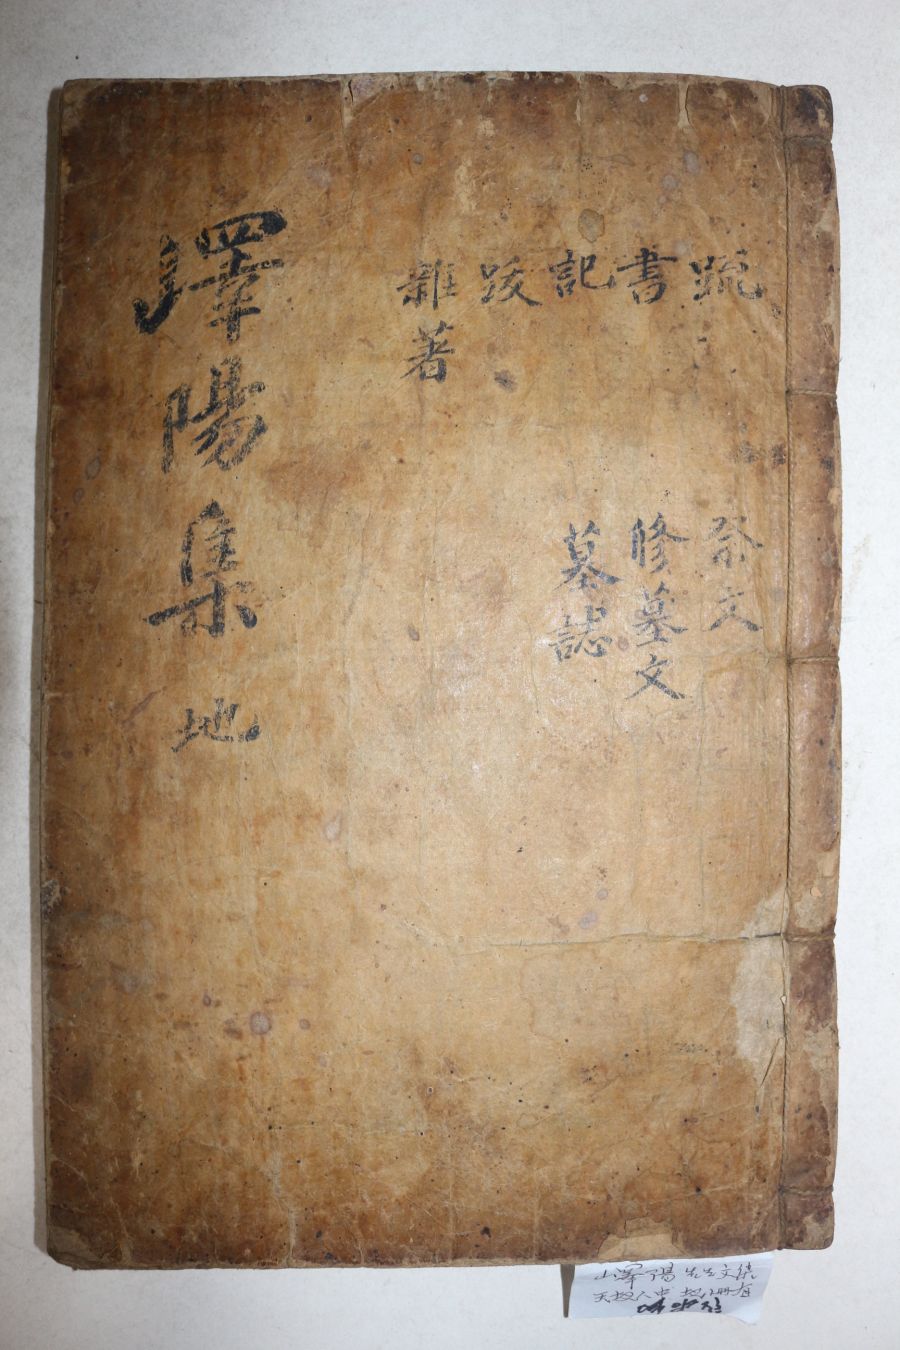 疏
書
記
跋
雜著
祭文
修墓文
墓誌
澤陽集 地
山澤陽先生文集